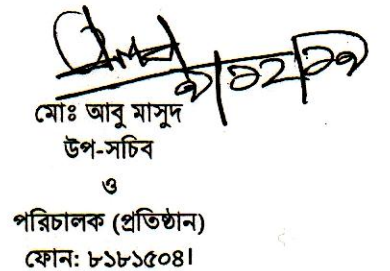 মোঃ আবু মাসুদ
উপ-সচিব
ও
পরিচালক (প্রতিষ্ঠান)
ফোন: ৮১৮১৫০৪।